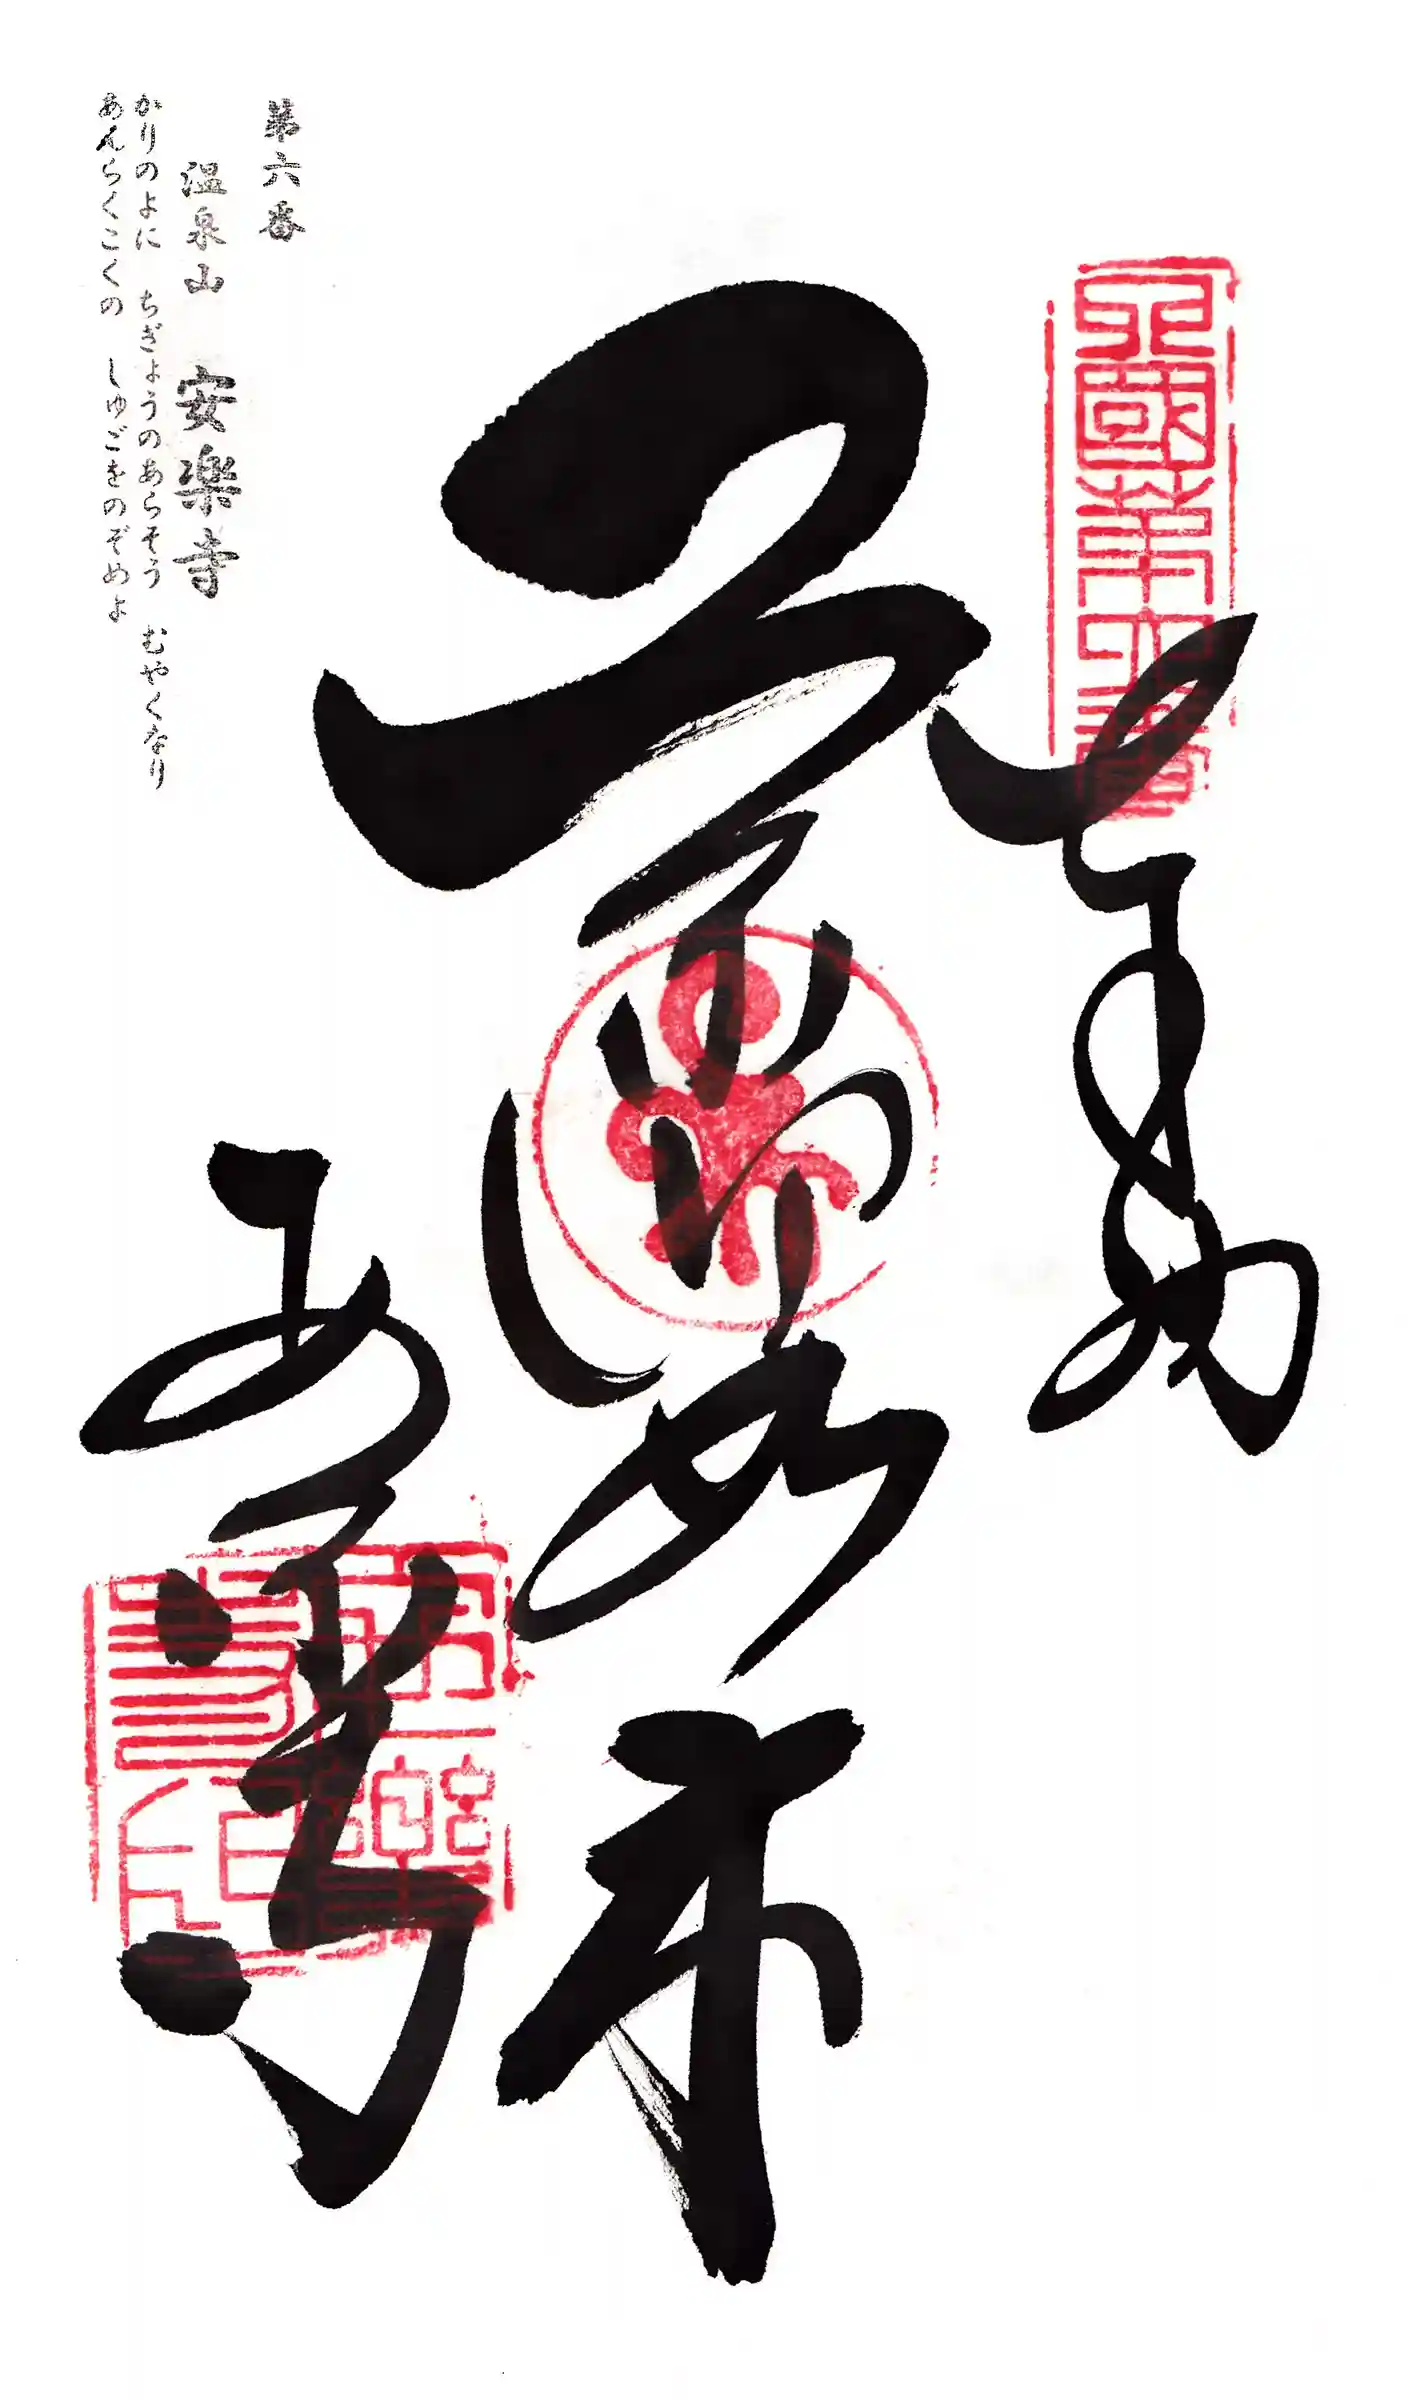 四國第六番
奉納
薬師如来
安楽寺
安樂寺印
第六番
温泉山 安楽寺
かりのよに ちぎょうのあらそう むやくなり
あんらくこくの しゅごをのぞめよ